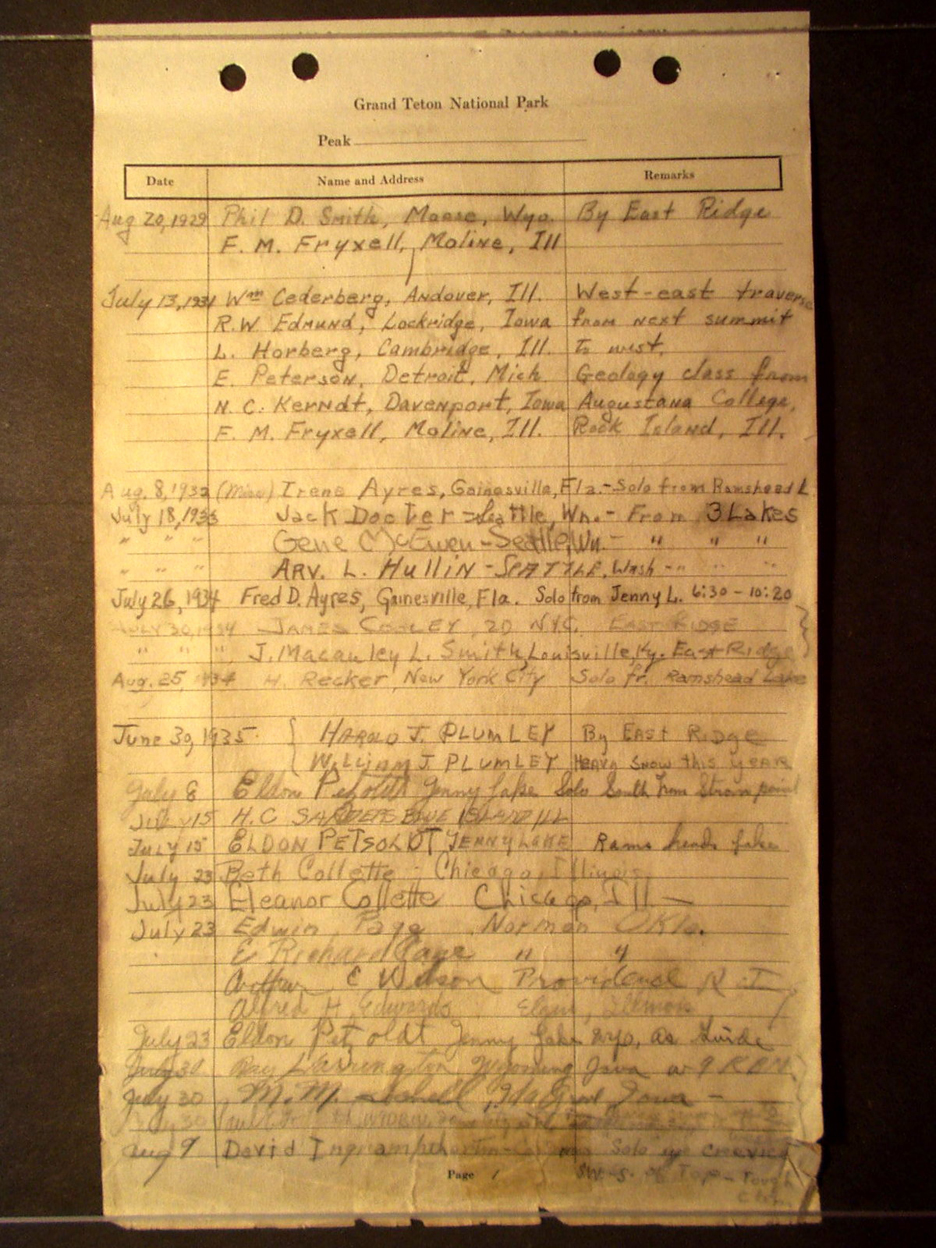 Grand Teton National Park
Peak
Date Name and Address Remarks
Aug 20, 1929 Phil D. Smith, Moose, Wyo. By East Ridge
F. M. Fryxell, Moline, Ill
July 13, 1931 Wm Cederberg, Andover, Ill. West-east traverse
R.W Edmund, Lockridge, Iowa from next summit
L. Horberg, Cambridge, Ill. to west.
E. Peterson, Detroit, Mich. Geology class from
N. C. Kerndt, Davenport, Iowa Augustana College,
F. M. Fryxell, Moline, Ill. Rock Island, Ill.
Aug. 8, 1932 (Miss) Irene Ayres, Gainesville, Fla. - Solo from Ramshead L.
July 18, 1933 Jack Docter - Seattle, Wn. - From 3 Lakes
" " " Gene McGwen - Seattle, Wn. - " " "
" " " ARV. L. Hullin - SEATTLE, Wash - " " "
July 26, 1934 Fred D. Ayres, Gainesville, Fla. Solo from Jenny L. 6:30 - 10:20
JULY 30, 1934 JAMES 20 NYC. EAST RIDGE
" " " J. Macauley L. Smith, Louisville, Ky. East Ridge
Aug. 25, 1934 H. Recker, New York City Solo fr. Ramshead Lake
June 30, 1935 { HAROLD J. PLUMLEY By EAST RIDGE
WILLIAM J PLUMLEY HEAVY SNOW THIS YEAR
July 8 Eldon Petzoldt Jenny Lake Solo South from
July 15 H.C BLUE ISLAND ILL
July 15 ELDON PETSOLDT JENNY LAKE Rams heads lake
July 23 Beth Collette - Chicago, Illinois
July 23 Eleanor Collette Chicago, Ill -
July 23 Edwin Page Norman Okla.
E Richard Page " "
Arthur C Wilson Providence R I
Alfred H. Edwards Elgin, Illinois
July 23 Eldon Petzoldt Jenny Lake Wyo, as Guide
July 30 Ray Wyoming Iowa
July 30 M. M. Ida Grove Iowa -
July 30
Aug 9 David Ingram Solo
S.W.-S. of Top - Tough
Page 1